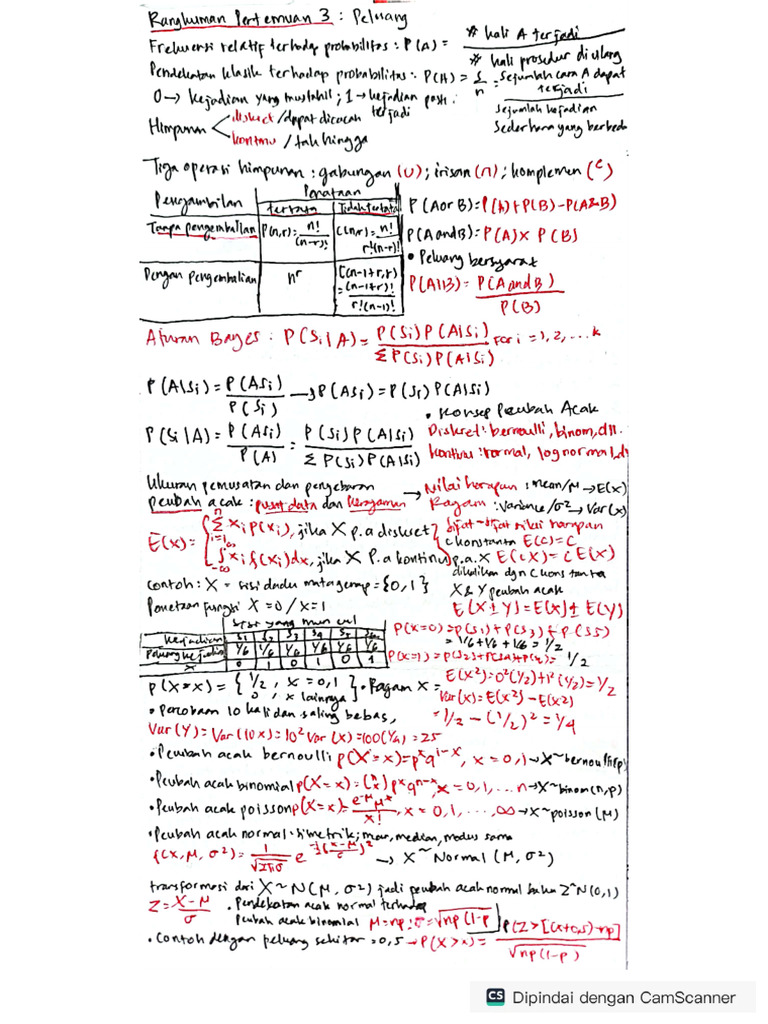 Rangkuman Pertemuan 3 : Peluang
Frekuensi relatif terhadap probabilitas : P(A) = # kali A terjadi / # kali prosedur diulang
Pendekatan klasik terhadap probabilitas : P(A) = s/n = Sejumlah cara A dapat terjadi / Sejumlah kejadian Sederhana yang berbeda
0 → kejadian yang mustahil ; 1 → kejadian pasti terjadi
Himpunan < diskret / dapat dicacah
kontinu / tak hingga
Tiga operasi himpunan : gabungan (∪) ; irisan (∩) ; komplemen (c)
Pengambilan | Penataan
tertata | Tidak tertata
Tanpa pengembalian | P(n,r) = n!/(n-r)! | C(n,r) = n!/r!(n-r)!
Dengan pengembalian | n^r | C(n-1+r,r) = (n-1+r)!/r!(n-1)!
P(A or B) = P(A) + P(B) - P(A&B)
P(A and B) = P(A) x P(B)
• Peluang bersyarat
P(A|B) = P(A and B)/P(B)
Aturan Bayes : P(Si|A) = P(Si)P(A|Si) / Σ P(Si)P(A|Si) for i = 1, 2, ... k
P(A|Si) = P(ASi)/P(Si) → P(ASi) = P(Si) P(A|Si)
P(Si|A) = P(ASi)/P(A) = P(Si)P(A|Si) / Σ P(Si)P(A|Si)
• Konsep Peubah Acak
Diskret : bernoulli, binom, dll.
Kontinu : normal, lognormal, d
Ukuran pemusatan dan penyebaran
peubah acak : pusat data dan keragaman
→ Nilai harapan : mean/μ → E(x)
Ragam : variance/σ² → Var(x)
E(x) = { Σ xi p(xi), jika X p.a diskret
∫ xi f(xi)dx, jika X p.a kontinu
Sifat-sifat nilai harapan
c konstanta E(c) = c
p.a. X E(cX) = cE(x)
dikalikan dgn c konstanta
X & Y peubah acak
E(X ± Y) = E(x) ± E(Y)
Contoh : X = sisi dadu mata genap = {0,1}
Pemetaan fungsi X = 0 / x = 1
Sisi yang muncul
Kejadian | S1 | S2 | S3 | S4 | S5 | S6
Peluang kejadian | 1/6 | 1/6 | 1/6 | 1/6 | 1/6 | 1/6
x | 0 | 1 | 0 | 1 | 0 | 1
P(x=0) = p(s1) + p(s3) + p(s5)
= 1/6 + 1/6 + 1/6 = 1/2
P(x=1) = p(s2) + p(s4) + p(s6) = 1/2
P(X=x) = { 1/2 , x = 0,1
0 , x lainnya }
• Ragam X =
E(x²) = 0²(1/2) + 1²(1/2) = 1/2
Var(x) = E(x²) - E(x²)
= 1/2 - (1/2)² = 1/4
• Percobaan 10 kali dan saling bebas,
Var(Y) = Var(10x) = 10² Var(x) = 100(1/4) = 25
• Peubah acak bernoulli p(X=x) = p^x q^1-x, x = 0,1 → X~bernoulli(p)
• Peubah acak binomial p(X=x) = (n x) p^x q^n-x, x = 0,1, ... n → X~binom(n,p)
• Peubah acak poisson p(X=x) = e^-μ μ^x / x! , x = 0,1, ..., ∞ → X~poisson(μ)
• Peubah acak normal : simetrik ; mean, median, modus sama
f(x, μ, σ²) = 1/√2πσ e^-½(x-μ/σ)² → X ~ Normal (μ, σ²)
transformasi dari X ~ N(μ, σ²) jadi peubah acak normal baku Z~N(0,1)
Z = X-μ/σ • Pendekatan acak normal terhadap
Peubah acak binomial μ = np ; σ = √np(1-p)
• Contoh dengan peluang sekitar = 0,5 → P(X > x) = P(Z > [(x+0,5)-np] / √np(1-p)
CS Dipindai dengan CamScanner